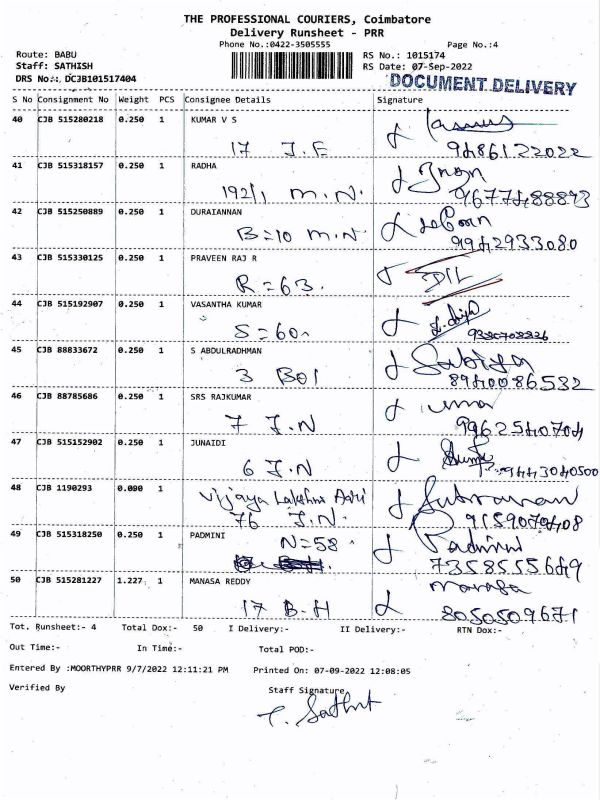 THE PROFESSIONAL COURIERS, Coimbatore
Delivery Runsheet - PRR
Phone No.:0422-3505555 Page No.:4
Route: BABU RS No.: 1015174
Staff: SATHISH RS Date: 07-Sep-2022
DRS No.: DCJB101517404
DOCUMENT DELIVERY
S No Consignment No Weight PCS Consignee Details Signature
40 CJB 515280218 0.250 1 KUMAR V S
17 J.E 9486122022
41 CJB 515318157 0.250 1 RADHA
192/1 M.N. 9677488893
42 CJB 515250889 0.250 1 DURAIANNAN
B=10 M.N. 9942933080
43 CJB 515330125 0.250 1 PRAVEEN RAJ R
R=63.
44 CJB 515192907 0.250 1 VASANTHA KUMAR
S=60
45 CJB 88833672 0.250 1 S ABDULRADHMAN Sabiya
3 BOI 8940086532
46 CJB 88785686 0.250 1 SRS RAJKUMAR uma
7 J.N 9962540704
47 CJB 515152902 0.250 1 JUNAIDI
6 J.N 9443040500
48 CJB 1190293 0.090 1 Vijaya Lakshmi
76 J.N. 9159070408
49 CJB 515318250 0.250 1 PADMINI N=58 Padmini
7358555649
50 CJB 515281227 1.227 1 MANASA REDDY manasa
17 B.H 8050509671
Tot. Runsheet:- 4 Total Dox:- 50 I Delivery:- II Delivery:- RTN Dox:-
Out Time:- In Time:- Total POD:-
Entered By :MOORTHYPRR 9/7/2022 12:11:21 PM Printed On: 07-09-2022 12:08:05
Verified By Staff Signature